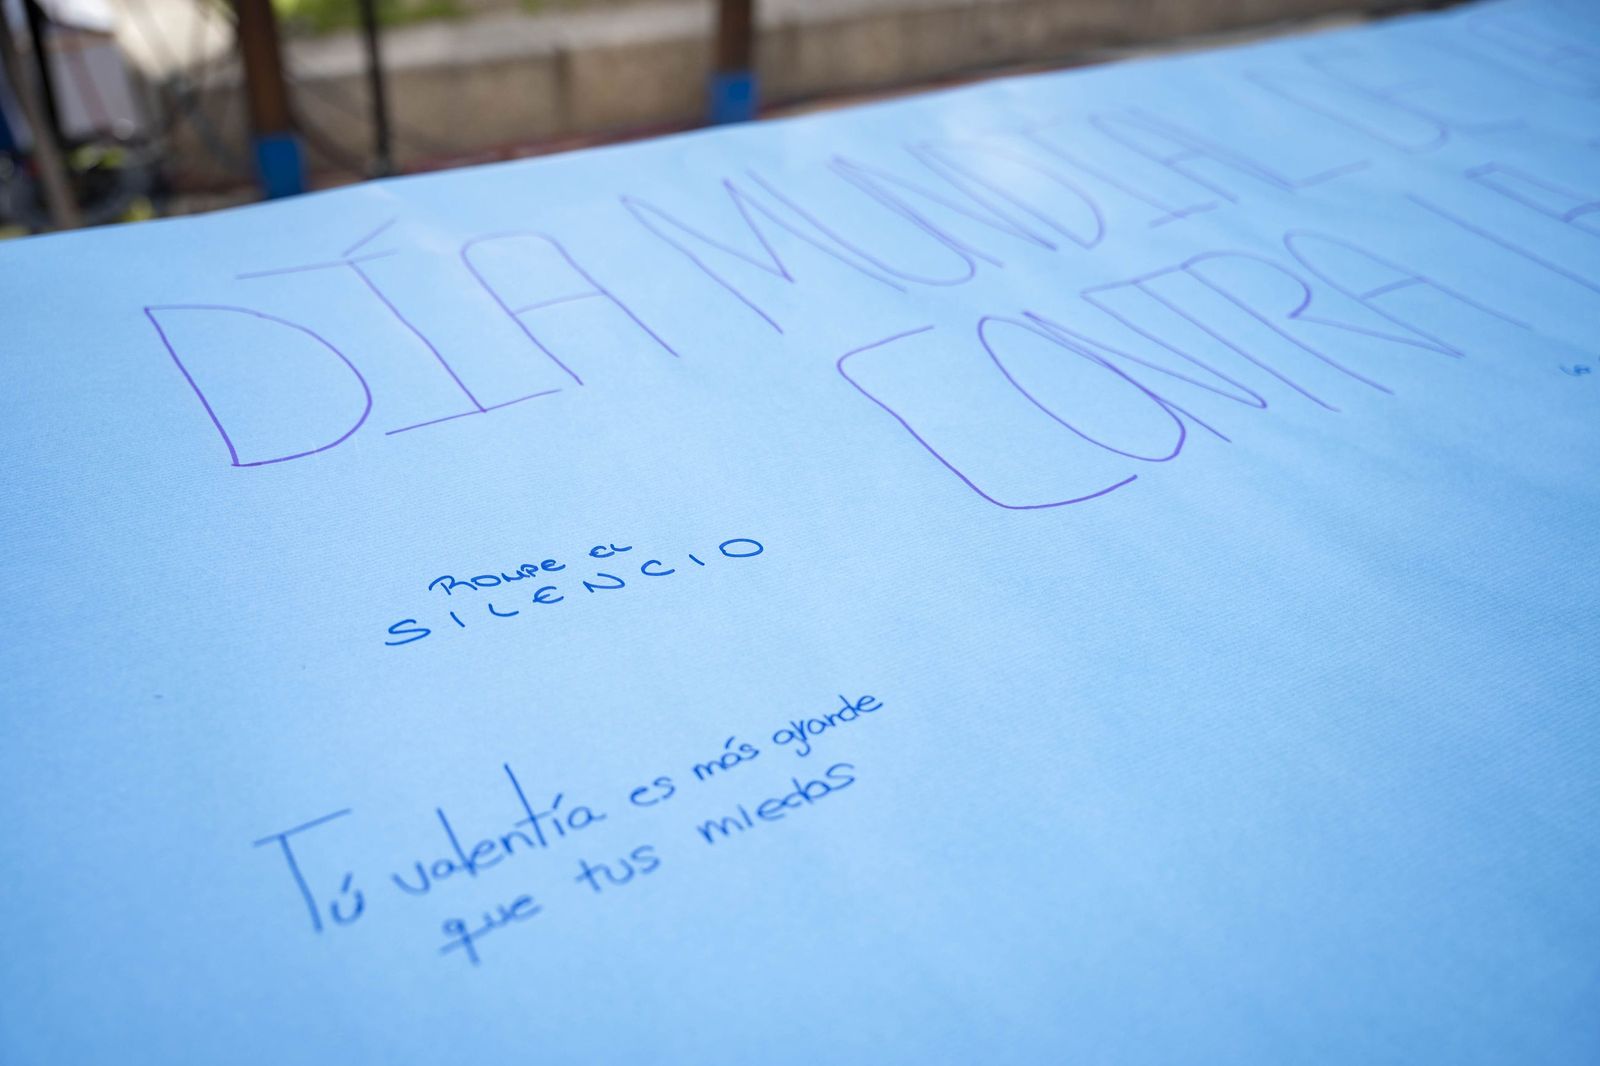 DÍA MUNDIAL DE
CONTRA LA
ROMPE EL
SILENCIO
Tú valentía es más grande
que tus miedos